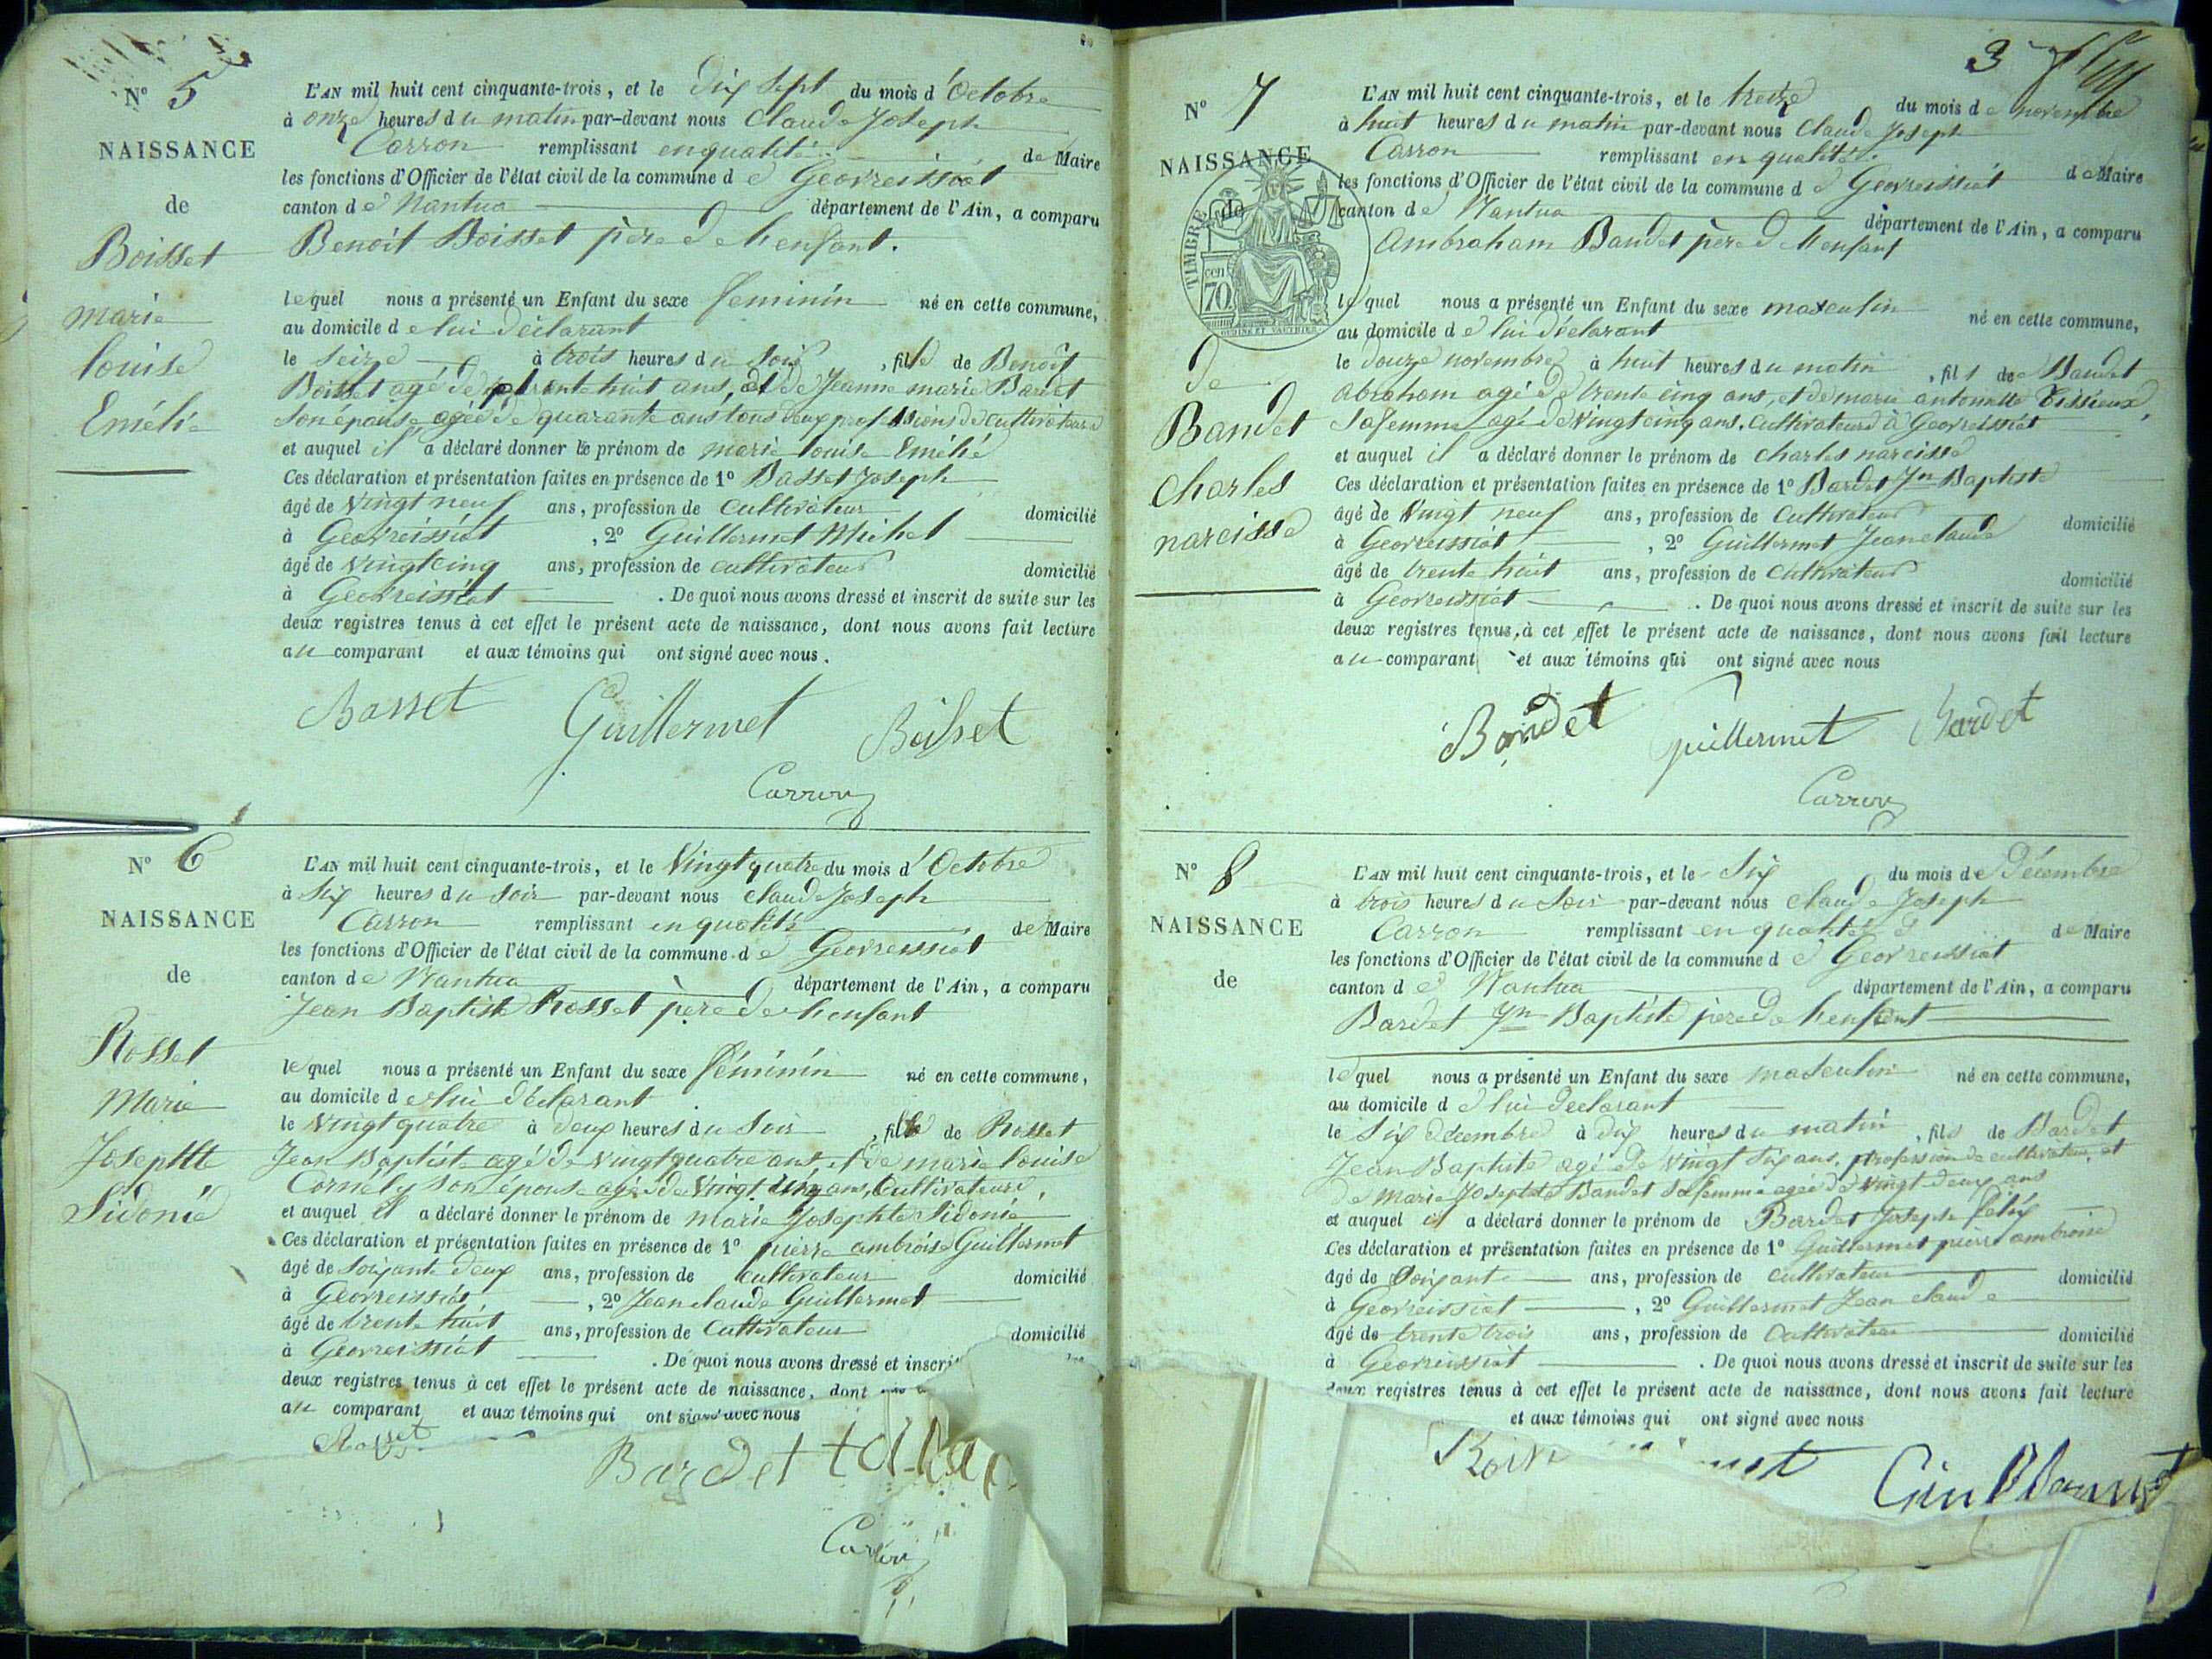 N° 5
NAISSANCE
de
Boisset
marie
louise
Emélie
L'AN mil huit cent cinquante-trois, et le dix sept du mois d'Octobre
à onze heures du matin par-devant nous Claude Joseph
Carron remplissant en qualité de Maire
les fonctions d'Officier de l'état civil de la commune de Georreissiat
canton de Nantua département de l'Ain, a comparu
Benoit Boisset père de l'enfant.
lequel nous a présenté un Enfant du sexe feminin né en cette commune,
au domicile de lui déclarant
le seize à trois heures du soir, fille de Benoit
Boisset agé de quarante huit ans, et de Jeanne marie Bardet
son épouse agée de quarante ans tous deux professions de cultivateurs
et auquel il a déclaré donner le prénom de marie louise Emélie
Ces déclaration et présentation faites en présence de 1° Basset Joseph
âgé de vingt neuf ans, profession de cultivateur domicilié
à Georreissiat, 2° Guillermet Michel
âgé de vingt cinq ans, profession de cultivateur domicilié
à Georreissiat. De quoi nous avons dressé et inscrit de suite sur les
deux registres tenus à cet effet le présent acte de naissance, dont nous avons fait lecture
au comparant et aux témoins qui ont signé avec nous.
Basset Guillermet Boisset
Carron
N° 6
NAISSANCE
de
Rosset
Marie
Josephte
Sidonie
L'AN mil huit cent cinquante-trois, et le vingt quatre du mois d'Octobre
à six heures du soir par-devant nous claude Joseph
Carron remplissant en qualité de Maire
les fonctions d'Officier de l'état civil de la commune de Georreissiat
canton de Nantua département de l'Ain, a comparu
Jean Baptiste Rosset père de l'enfant
lequel nous a présenté un Enfant du sexe féminin né en cette commune,
au domicile de lui déclarant
le vingt quatre à deux heures du soir, fille de Rosset
Jean Baptiste agé de vingt quatre ans, et de marie louise
Cornély son épouse agée de vingt cinq ans, Cultivateurs,
et auquel il a déclaré donner le prénom de marie Josephte Sidonie
Ces déclaration et présentation faites en présence de 1° pierre ambroise Guillermet
âgé de soixante deux ans, profession de cultivateur domicilié
à Georreissiat, 2° Jean claude Guillermet
âgé de trente huit ans, profession de cultivateur domicilié
à Georreissiat. De quoi nous avons dressé et inscri
deux registres tenus à cet effet le présent acte de naissance, dont
au comparant et aux témoins qui ont signé avec nous
Rosset
Bardet
Carron
3
N° 7
NAISSANCE
de
TIMBRE
70 cen
de
Baudet
Charles
narcisse
L'AN mil huit cent cinquante-trois, et le treize du mois de novembre
à huit heures du matin par-devant nous Claude Joseph
Carron remplissant en qualité de Maire
les fonctions d'Officier de l'état civil de la commune de Georreissiat
canton de Nantua département de l'Ain, a comparu
Ambraham Baudet père de l'enfant
lequel nous a présenté un Enfant du sexe masculin né en cette commune,
au domicile de lui déclarant
le douze novembre à huit heures du matin, fils de Baudet
Abraham agé de trente cinq ans, et de marie antoinette
sa femme agé de vingt cinq ans. Cultivateurs à Georreissiat
et auquel il a déclaré donner le prénom de charles narcisse
Ces déclaration et présentation faites en présence de 1° Bardet Jn Baptiste
âgé de vingt neuf ans, profession de cultivateur domicilié
à Georreissiat, 2° Guillermet Jean claude
âgé de trente huit ans, profession de cultivateur domicilié
à Georreissiat. De quoi nous avons dressé et inscrit de suite sur les
deux registres tenus à cet effet le présent acte de naissance, dont nous avons fait lecture
au comparant et aux témoins qui ont signé avec nous
Baudet guillermet Bardet
Carron
N° 8
NAISSANCE
de
L'AN mil huit cent cinquante-trois, et le Six du mois de Décembre
à trois heures du soir par-devant nous Claude Joseph
Carron remplissant en qualité de Maire
les fonctions d'Officier de l'état civil de la commune de Georreissiat
canton de Nantua département de l'Ain, a comparu
Bardet Jn Baptiste père de l'enfant
lequel nous a présenté un Enfant du sexe masculin né en cette commune,
au domicile de lui déclarant
le Six décembre à dix heures du matin, fils de Bardet
Jean Baptiste agé de vingt six ans, profession de cultivateur, et
de Marie Josephte Baudet sa femme agée de vingt deux ans
et auquel il a déclaré donner le prénom de Bardet Joseph félix
Ces déclaration et présentation faites en présence de 1° Guillermet pierre ambroise
âgé de soixante ans, profession de cultivateur domicilié
à Georreissiat, 2° Guillermet Jean claude
âgé de trente trois ans, profession de cultivateur domicilié
à Georreissiat. De quoi nous avons dressé et inscrit de suite sur les
deux registres tenus à cet effet le présent acte de naissance, dont nous avons fait lecture
et aux témoins qui ont signé avec nous